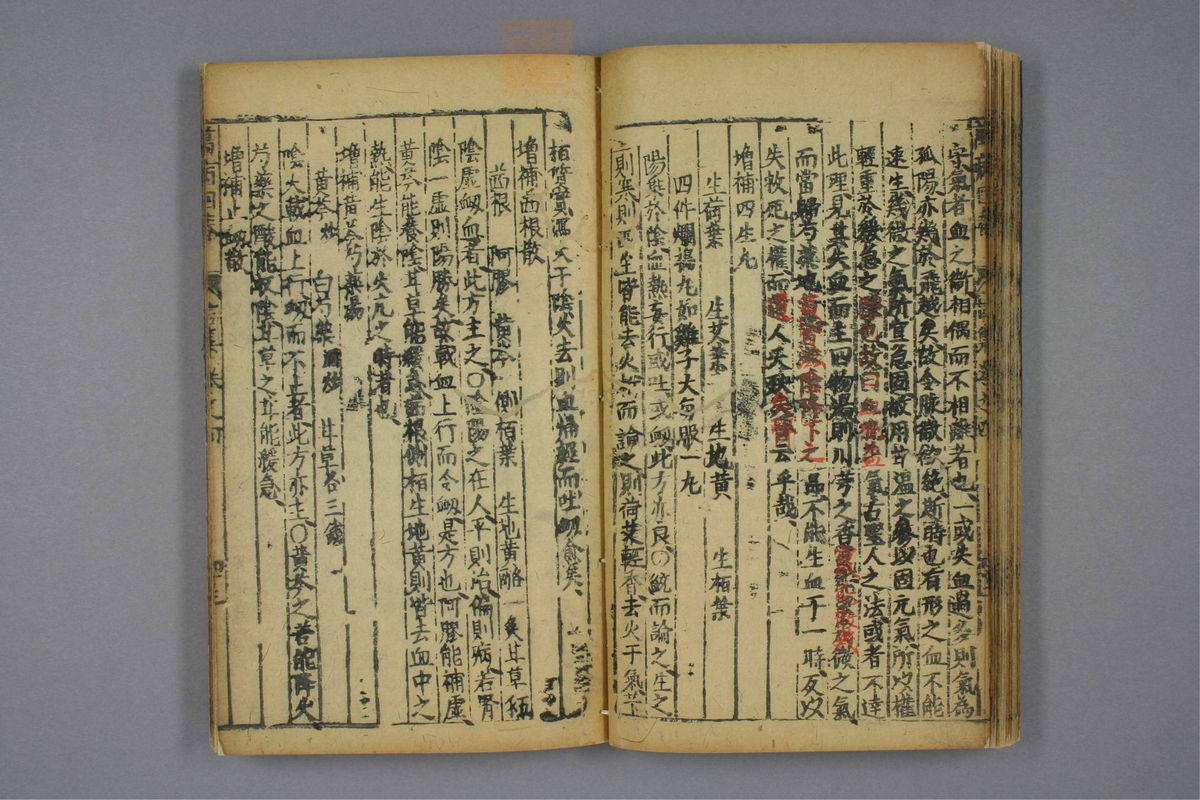 守氣者血之衛相偶而不相離者也一或失血過多則氣為
孤陽亦幾於飛越矣故令脉微欲絕斯時也有形之血不能
速生幾微之氣所宜急固故用甘溫之參以固元氣所以權
輕重於緩急之際也故曰血脫益氣古聖人之法或者不達
此理見其失血而主四物湯則川芎之香竄能散幾微之氣
而當歸芍藥地黃皆滋陰降下之品不能生血于一時反以
失救死之權而遺人夭殃矣醫云乎哉
增補四生丸
生荷葉 生艾葉 生地黃 生柏葉
四件爛搗丸如雞子大每服一丸
陽乘於陰血熱妄行或吐或衂此方亦良○統而論之生之
則寒則四生皆能去火 而論之則荷葉輕香去火于氣
柏質實濕火于陰火去則血歸經而吐衂愈矣
增補茜根散
茜根 阿膠 黃芩 側柏葉 生地黃 各一 炙甘草
陰虛衂血者此方主之○陰陽之在人平則治偏則病若腎
陰一虛則陽勝矣故載血上行而令衂是方也阿膠能補虛
黃芩能養陰甘草能緩急茜根側柏生地黃則皆去血中之
熱能生陰於失亢之時者也
增補黃芩芍藥湯
黃芩 炒 白芍藥 酒炒 甘草 各三錢
陰火載血上行衂而不止者此方亦主○黃芩之苦能降火
芍藥之酸能收陰甘草之甘能緩急
增補止衂散